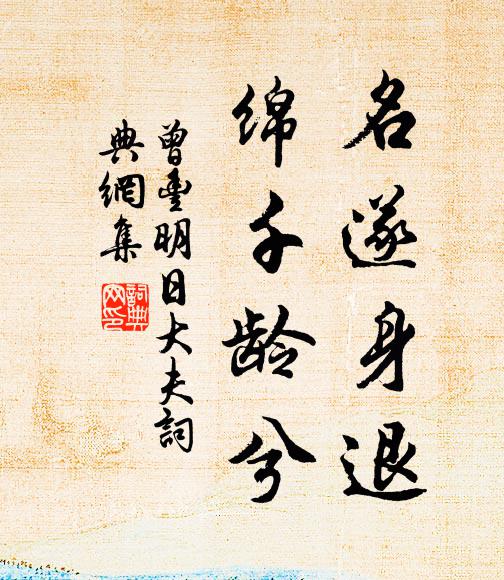 名遂身退
绵千龄兮
曾豐明日大夫詞
典網集
詞典网印